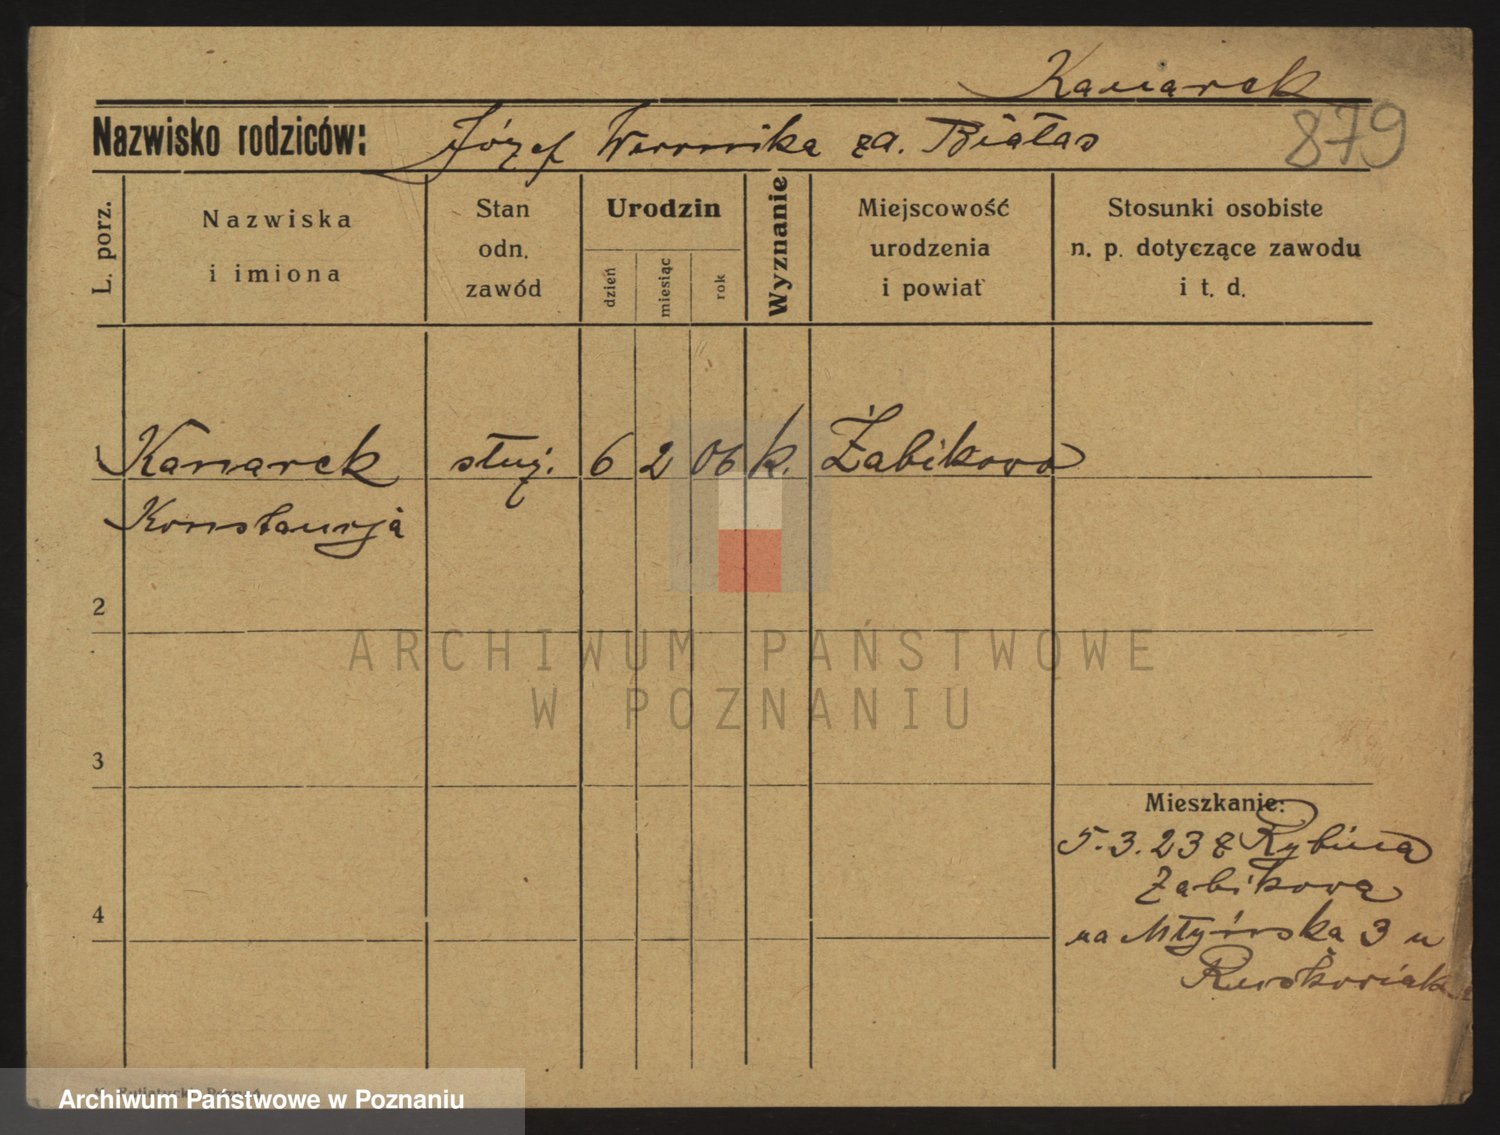 Kanarek
879
Nazwisko rodziców: Józef Weronika za. Białas
L. porz.
Nazwiska
i imiona
Stan
odn.
zawód
Urodzin
dzień
miesiąc
rok
Wyznanie
Miejscowość
urodzenia
i powiat
Stosunki osobiste
n. p. dotyczące zawodu
i t. d.
1 Kanarek służ. 6 2 06 k. Żabikowo
Konstancja
2
3
4
Mieszkanie:
5.3.23 z Rybina
Żabikowa
na Młyńska 3 u
ARCHIWUM PAŃSTWOWE
W POZNANIU
Archiwum Państwowe w Poznaniu